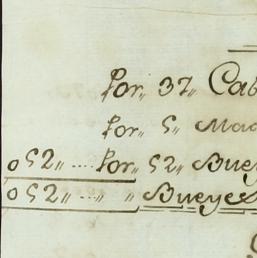 Por,, 37,, Cab
Por,, 5,, Mac
052,, .... Por,, 52,, Buey
052,, .... ,, Bueyes